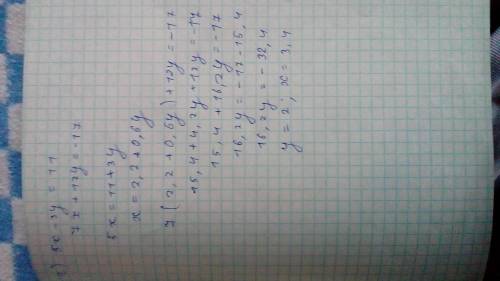 г) 5x-3y = 11
7x+12y=-17
5x = 11+3y
x = 2,2+0,6y
7(2,2+0,6y)+12y=-17
15,4+4,2y+12y=-17
15,4+16,2y=-17
16,2y = -17-15,4
16,2y = -32,4
y = 2; x = 3,4